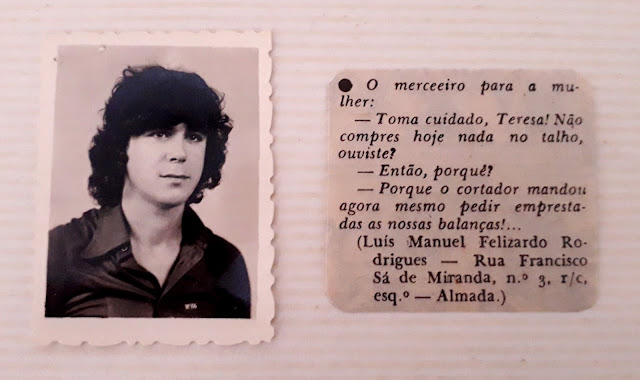 ● O merceeiro para a mu-
lher:
— Toma cuidado, Teresa! Não
compres hoje nada no talho,
ouviste?
— Então, porquê?
— Porque o cortador mandou
agora mesmo pedir empresta-
das as nossas balanças!...
(Luís Manuel Felizardo Ro-
drigues — Rua Francisco
Sá de Miranda, n.º 3, r/c,
esq.º — Almada.)